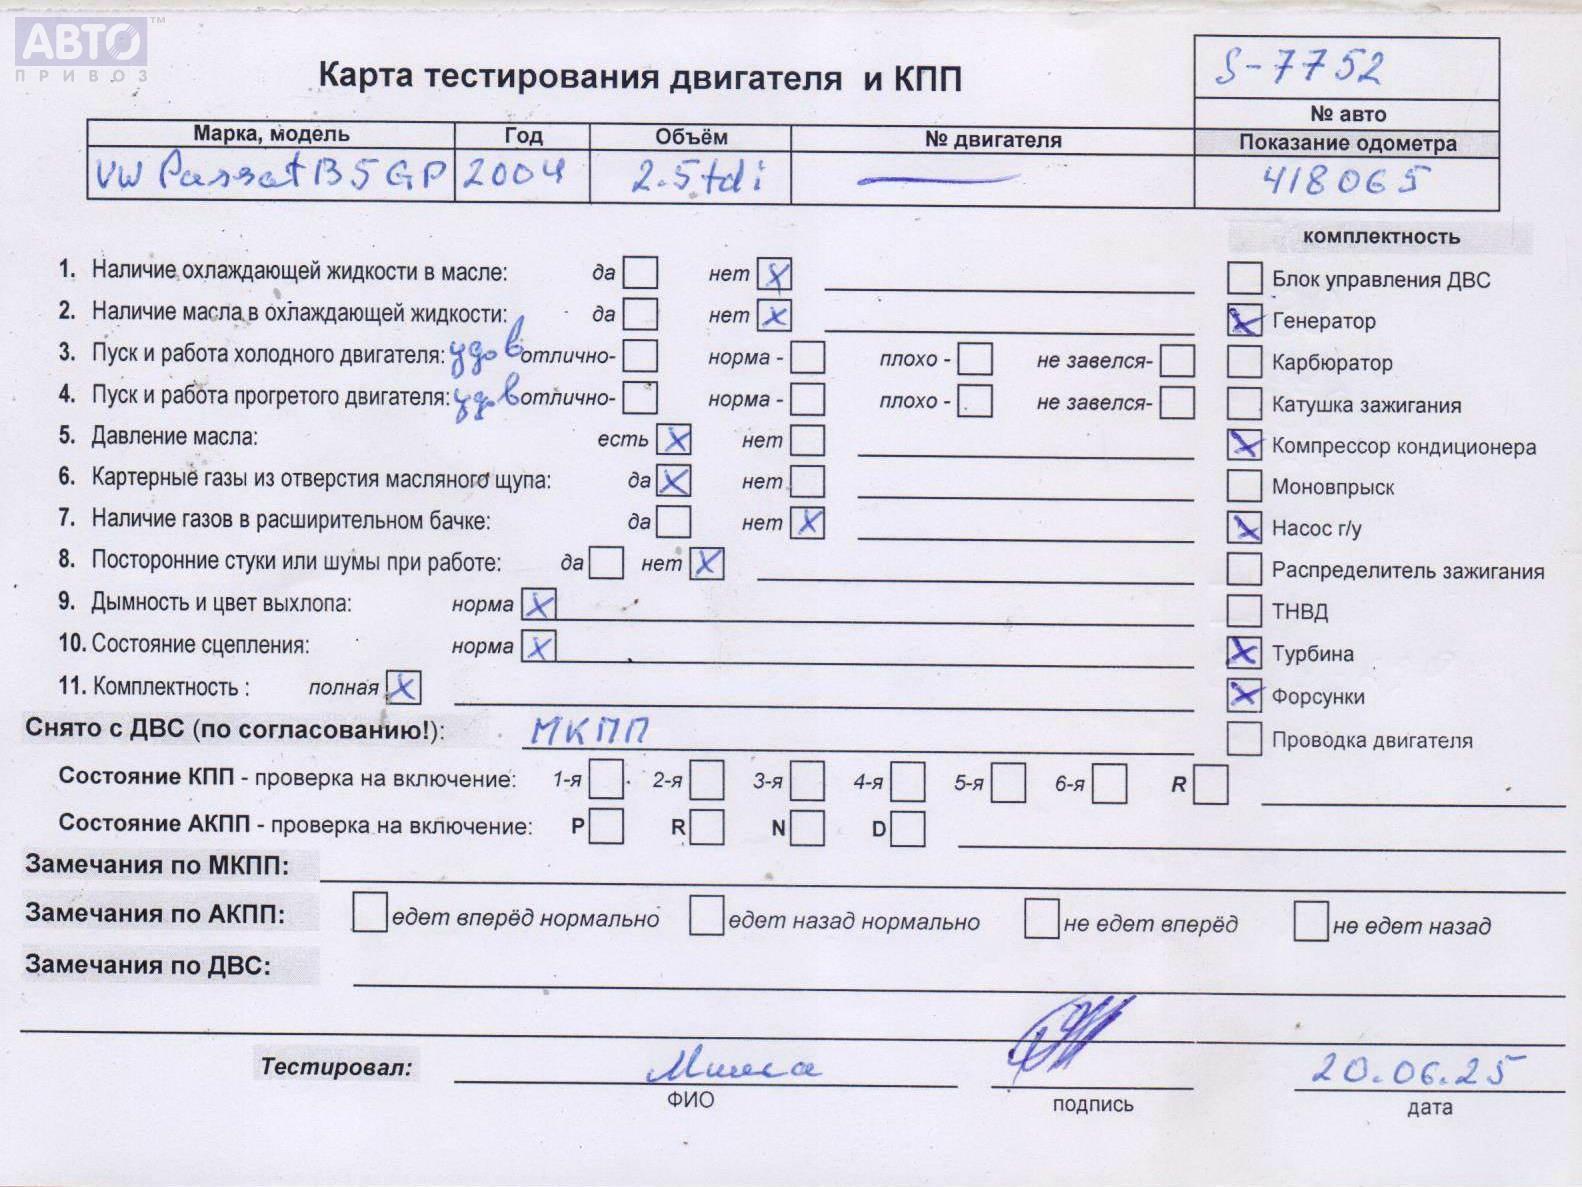 АВТО™
ПРИВОЗ
Карта тестирования двигателя и КПП
S-7752
№ авто
Марка, модель Год Объём № двигателя Показание одометра
VW Passat B5 GP 2004 2.5 tdi — 418065
комплектность
1. Наличие охлаждающей жидкости в масле: да нет X
Блок управления ДВС
2. Наличие масла в охлаждающей жидкости: да нет X
X Генератор
3. Пуск и работа холодного двигателя: удов отлично- норма - плохо - не завелся-
Карбюратор
4. Пуск и работа прогретого двигателя: удов отлично- норма - плохо - не завелся-
Катушка зажигания
5. Давление масла: есть X нет
X Компрессор кондиционера
6. Картерные газы из отверстия масляного щупа: да X нет
Моновпрыск
7. Наличие газов в расширительном бачке: да нет X
X Насос г/у
8. Посторонние стуки или шумы при работе: да нет X
Распределитель зажигания
9. Дымность и цвет выхлопа: норма X
ТНВД
10. Состояние сцепления: норма X
X Турбина
11. Комплектность : полная X
X Форсунки
Снято с ДВС (по согласованию!): МКПП
Проводка двигателя
Состояние КПП - проверка на включение: 1-я 2-я 3-я 4-я 5-я 6-я R
Состояние АКПП - проверка на включение: P R N D
Замечания по МКПП:
Замечания по АКПП: едет вперёд нормально едет назад нормально не едет вперёд не едет назад
Замечания по ДВС:
Тестировал: Миша 20.06.25
ФИО подпись дата